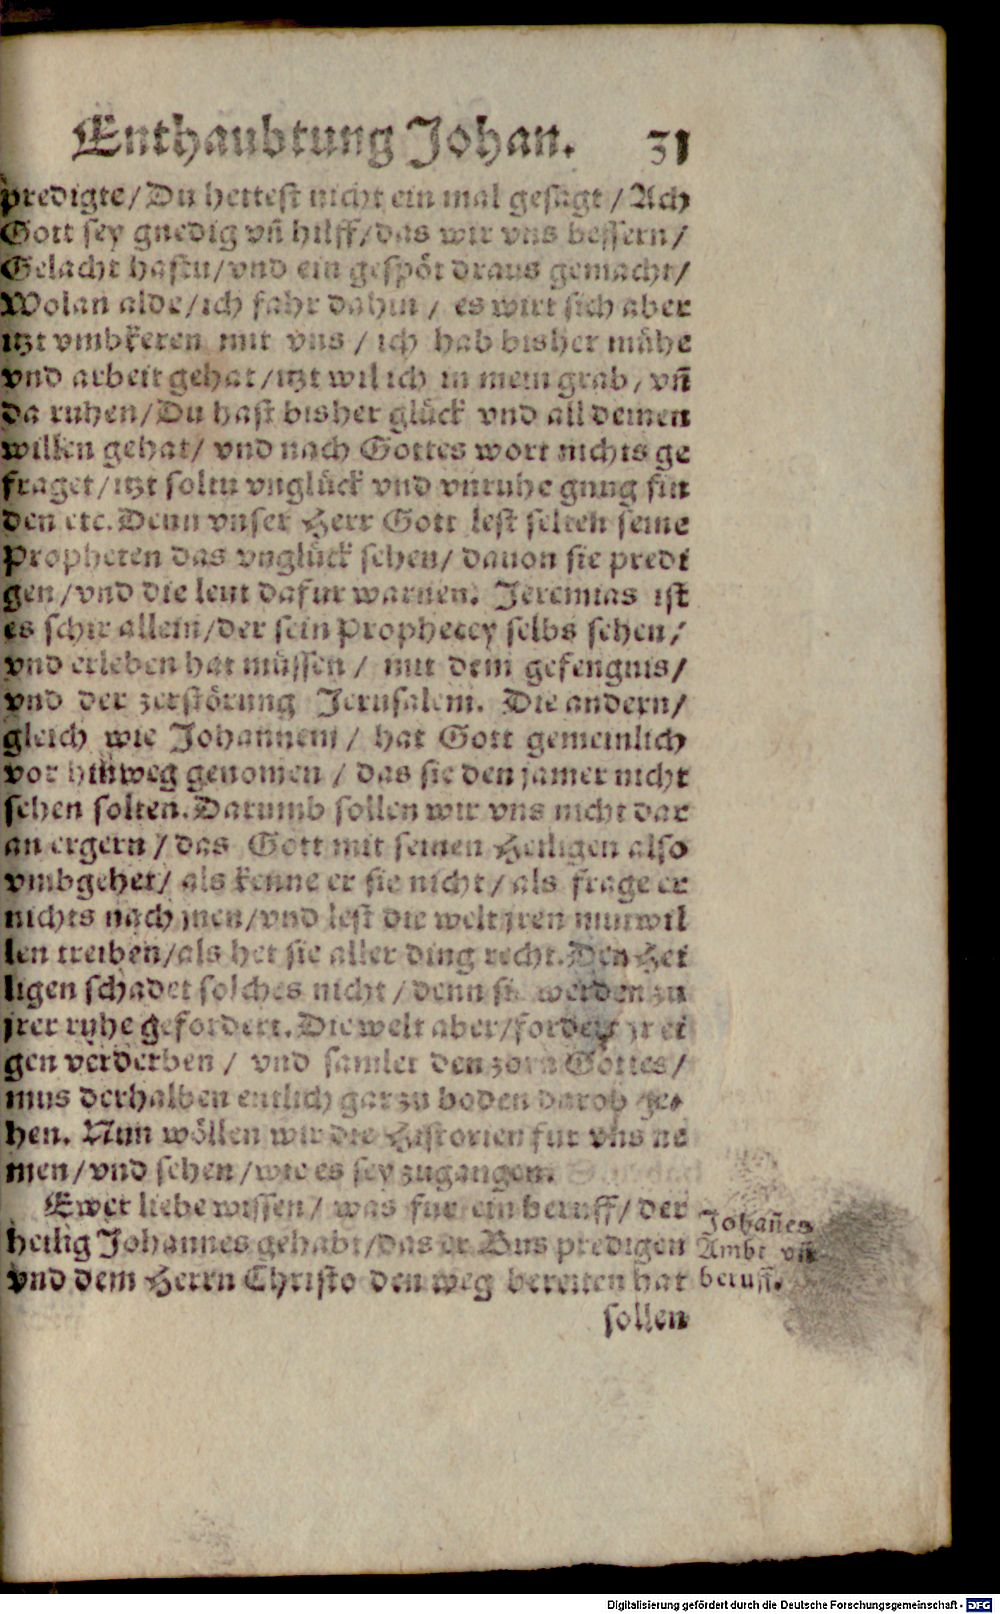 Enthaubtung Johan. 31
predigte/Du hettest nicht ein mal gesagt/Ach
Gott sey gnedig vñ hilff/das wir vns bessern/
Gelacht hastu/vnd ein gespöt draus gemacht/
Wolan alde/ich fahr dahin/ es wirt sich aber
itzt vmbkeren mit vns/ich hab bisher mühe
vnd arbeit gehat/itzt wil ich in mein grab, vñ
da ruhen/Du hast bisher glück vnd all deinen
willen gehat/ vnd nach Gottes wort nichts ge
fraget/itzt soltu vnglück vnd vnruhe gnug fin
den etc. Denn vnser Herr Gott lest selten seine
Propheten das vnglück sehen/ dauon sie predi
gen/vnd die leut dafur warnen. Jeremias ist
es schir allein/der sein Prophecey selbs sehen/
vnd erleben hat müssen/ mit dem gefengnis/
vnd der zerstörung Jerusalem. Die andern/
gleich wie Johannem/ hat Gott gemeinlich
vor hinweg genomen/ das sie den jamer nicht
sehen solten. Darumb sollen wir vns nicht dar
an ergern/das Gott mit seinen Heiligen also
vmbgehet/ als kenne er sie nicht/als frage er
nichts nach jnen/vnd lest die welt jren mutwil
len treiben/als het sie aller ding recht. Den Hei
ligen schadet solches nicht/denn sie werden zu
jrer ruhe gefordert. Die welt aber/fordert jr ei
gen verderben/ vnd samlet den zorn Gottes/
mus derhalben entlich gar zu boden darob ge-
hen. Nun wöllen wir die Historien fur vns ne
men/vnd sehen/wie es sey zugangen.
Ewer liebe wissen/ was fur ein beruff/der
heilig Johannes gehabt/das er Bus predigen
vnd dem Herrn Christo den weg bereiten hat
sollen
Johañes
Ambt vñ
beruff.
Digitalisierung gefördert durch die Deutsche Forschungsgemeinschaft - DFG